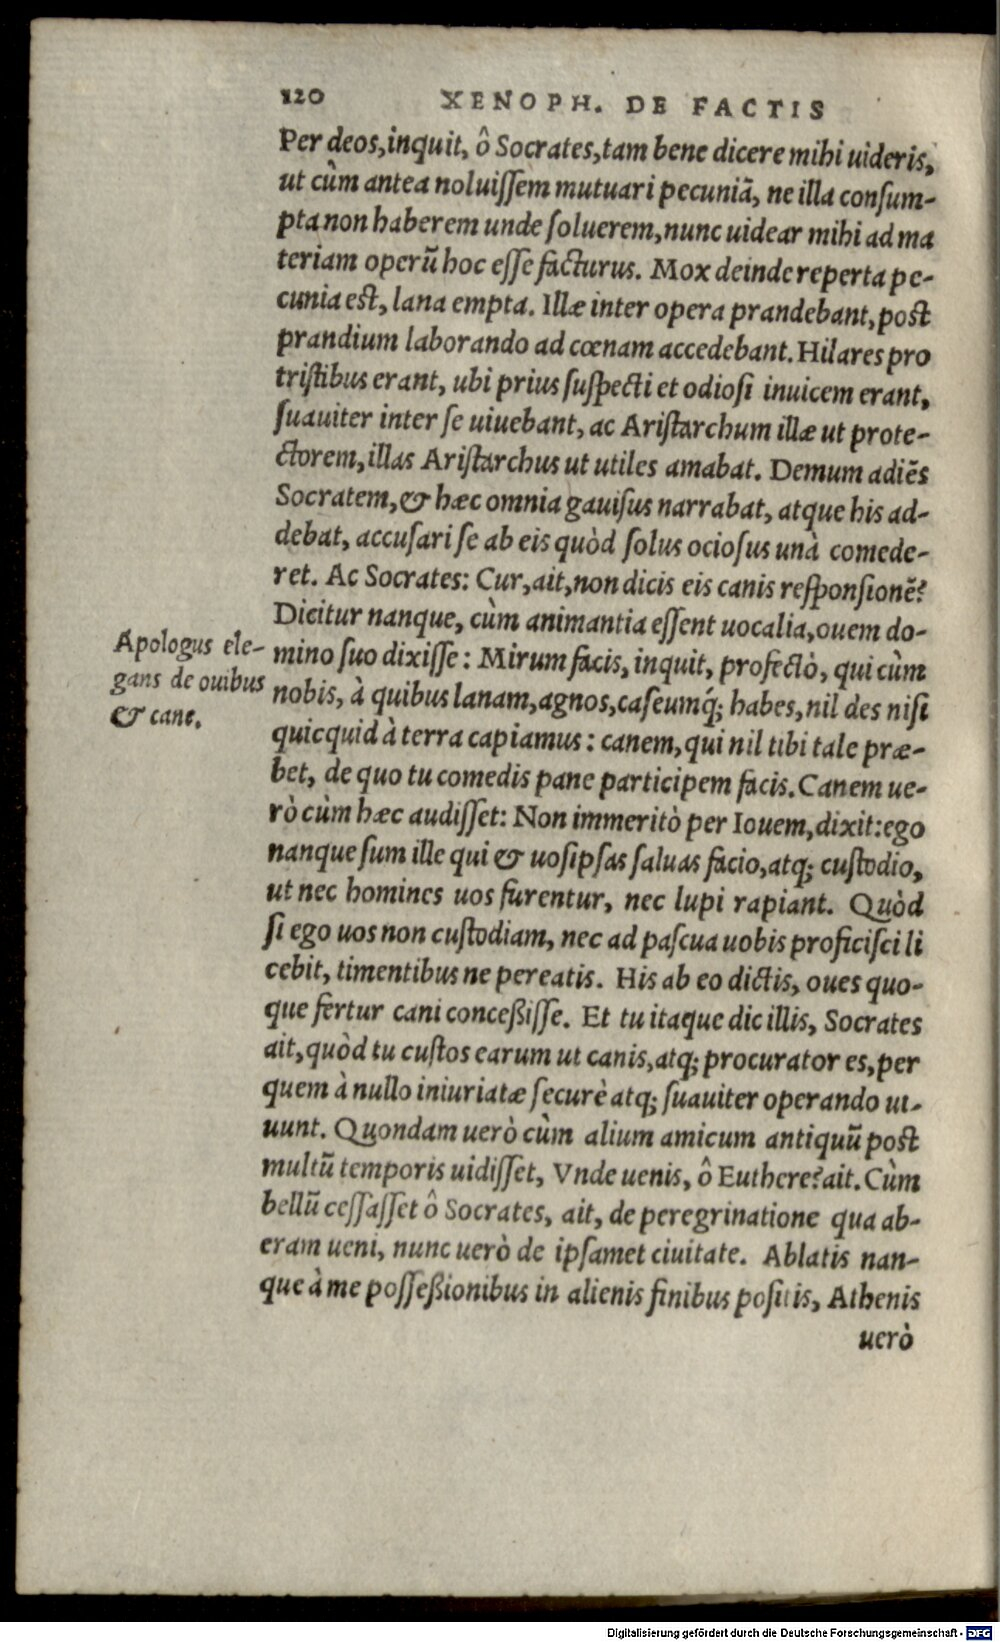 120 XENOPH. DE FACTIS
Per deos, inquit, ô Socrates, tam bene dicere mihi uideris,
ut cùm antea noluiſſem mutuari pecuniā, ne illa conſum-
pta non haberem unde ſoluerem, nunc uidear mihi ad ma
teriam operū hoc eſſe facturus. Mox deinde reperta pe-
cunia est, lana empta. Illæ inter opera prandebant, post
prandium laborando ad cœnam accedebant. Hilares pro
triſtibus erant, ubi prius ſuſpecti et odioſi inuicem erant,
ſuauiter inter ſe uiuebant, ac Ariſtarchum illæ ut prote-
ctorem, illas Ariſtarchus ut utiles amabat. Demum adiēs
Socratem, & hæc omnia gauiſus narrabat, atque his ad-
debat, accuſari ſe ab eis quòd ſolus ocioſus unà comede-
ret. Ac Socrates: Cur, ait, non dicis eis canis reſponſionē?
Dicitur nanque, cùm animantia eſſent uocalia, ouem do-
mino ſuo dixiſſe: Mirum facis, inquit, profectò, qui cùm
nobis, à quibus lanam, agnos, caſeumq́; habes, nil des niſi
quicquid à terra capiamus: canem, qui nil tibi tale præ-
bet, de quo tu comedis pane participem facis. Canem ue-
rò cùm hæc audiſſet: Non immeritò per Iouem, dixit: ego
nanque ſum ille qui & uosipſas ſaluas facio, atq; cuſtodio,
ut nec homines uos furentur, nec lupi rapiant. Quòd
ſi ego uos non cuſtodiam, nec ad paſcua uobis proficiſci li
cebit, timentibus ne pereatis. His ab eo dictis, oues quo-
que fertur cani conceßiſſe. Et tu itaque dic illis, Socrates
ait, quòd tu cuſtos earum ut canis, atq; procurator es, per
quem à nullo iniuriatæ ſecurè atq; ſuauiter operando ui-
uunt. Quondam uerò cùm alium amicum antiquū post
multū temporis uidiſſet, Vnde uenis, ô Euthere? ait. Cùm
bellū ceſſaſſet ô Socrates, ait, de peregrinatione qua ab-
eram ueni, nunc uerò de ipſamet ciuitate. Ablatis nan-
que à me poſſeßionibus in alienis finibus poſitis, Athenis
uerò
Apologus ele-
gans de ouibus
& cane.
Digitalisierung gefördert durch die Deutsche Forschungsgemeinschaft - DFG